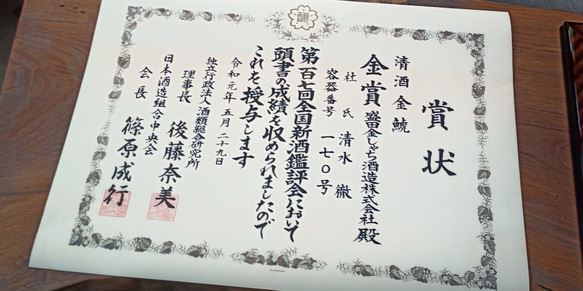 賞状
清酒 金鯱
金賞 盛田金しゃち酒造株式会社 殿
杜氏 清水 徹
容器番号 一七〇号
第百七回全国新酒鑑評会において
頭書の成績を収められましたので
これを授与します
令和元年五月二十九日
独立行政法人 酒類総合研究所
理事長 後藤奈美
日本酒造組合中央会
会長 篠原成行